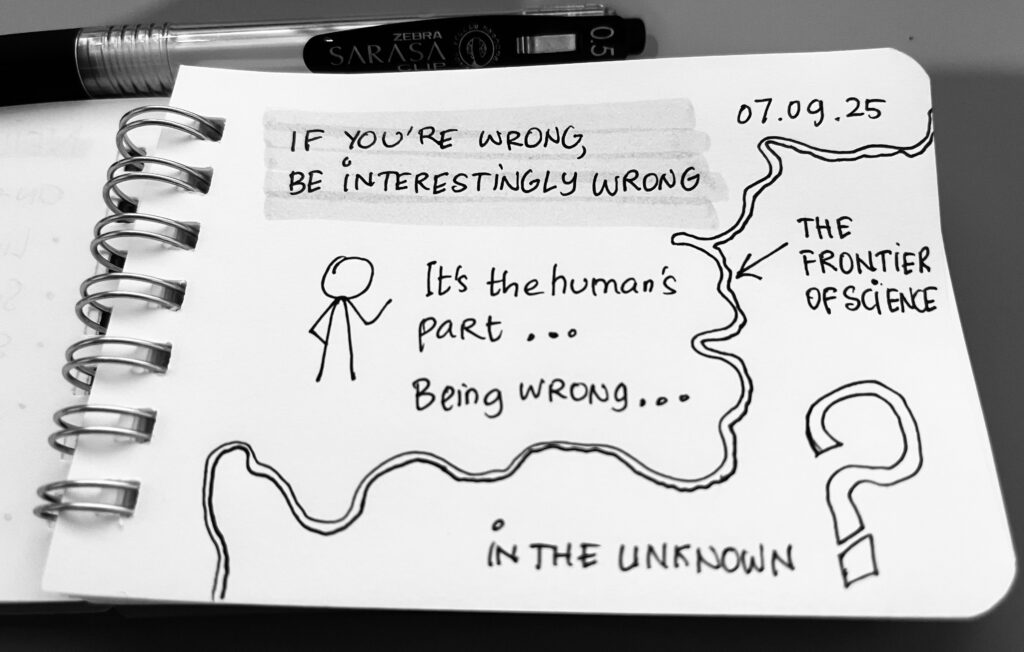 ZEBRA
SARASA
CLIP
0.5
07.09.25
IF YOU'RE WRONG,
BE INTERESTINGLY WRONG
THE
FRONTIER
OF SCIENCE
It's the human's
part ...
Being WRONG...
IN THE UNKNOWN
?